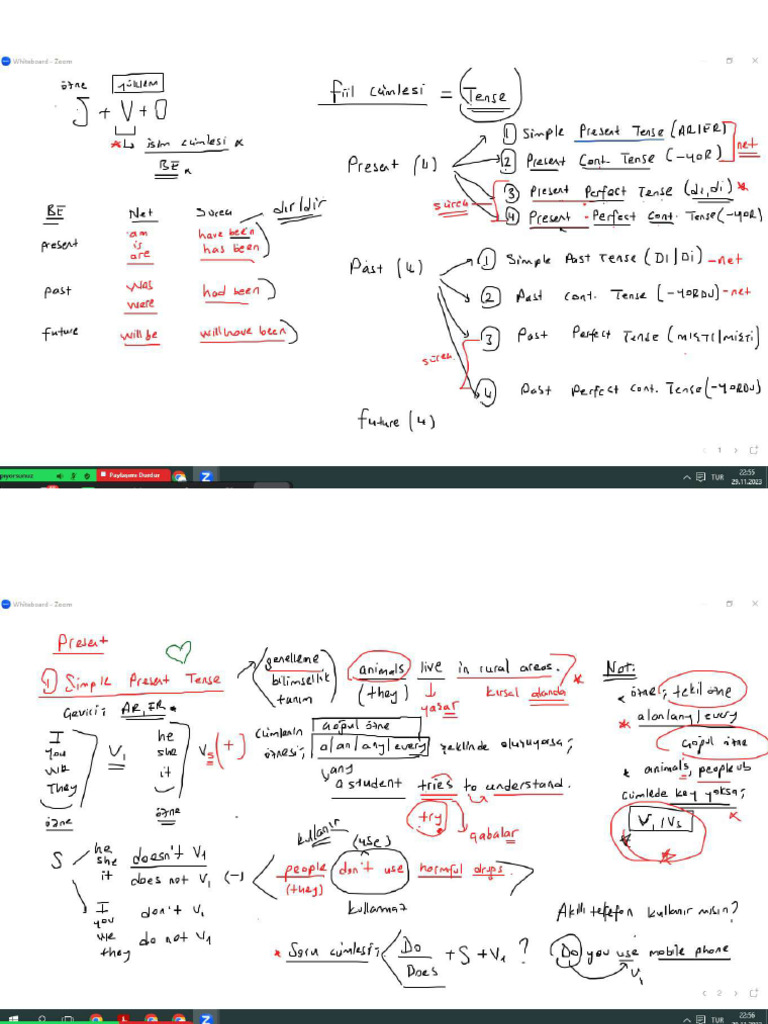 Whiteboard - Zoom
özne yüklem
S + V + O
isim cümlesi
BE
fiil cümlesi = Tense
Present (4)
1 Simple Present Tense (AR/ER)
2 Present Cont. Tense (-YOR)
net
3 Present Perfect Tense (dı,di)
4 Present Perfect Cont. Tense (-YOR)
süreç
BE Net Süreç dır/dir
present am is are have been has been
past was were had been
future will be will have been
Past (4)
1 Simple Past Tense (DI/Dİ) - net
2 Past Cont. Tense (-YORDU) - net
3 Past Perfect Tense (MIŞTI/MİŞTİ)
süreç
4 Past Perfect Cont. Tense (-YORDU)
future (4)
1
Paylaşımı Durdur
TUR
22:55
29.11.2023
Whiteboard - Zoom
Present
1 Simple Present Tense
Çeviri; AR, ER
genelleme
bilimsellik
tanım
animals live in rural areas.
(they) yaşar kırsal alanda
I
you
we
They
özne
V1
he
she
it
özne
Vs (+)
cümlenin çoğul özne
öznesi; a/an/any/every şeklinde oluşuyorsa;
any
a student tries to understand.
try
çabalar
Not:
özne; tekil özne
a/an/any/every
çoğul özne
animals, people vb
cümlede key yoksa;
V1/Vs
S
he
she
it
doesn't V1
does not V1 (-)
I
you
we
they
don't V1
do not V1
kullanır
(use)
people don't use harmful drugs.
(they)
kullanmaz
Soru cümlesi; Do
Does + S + V1 ?
Akıllı telefon kullanır mısın?
Do you use mobile phone
V1
2
TUR
22:56